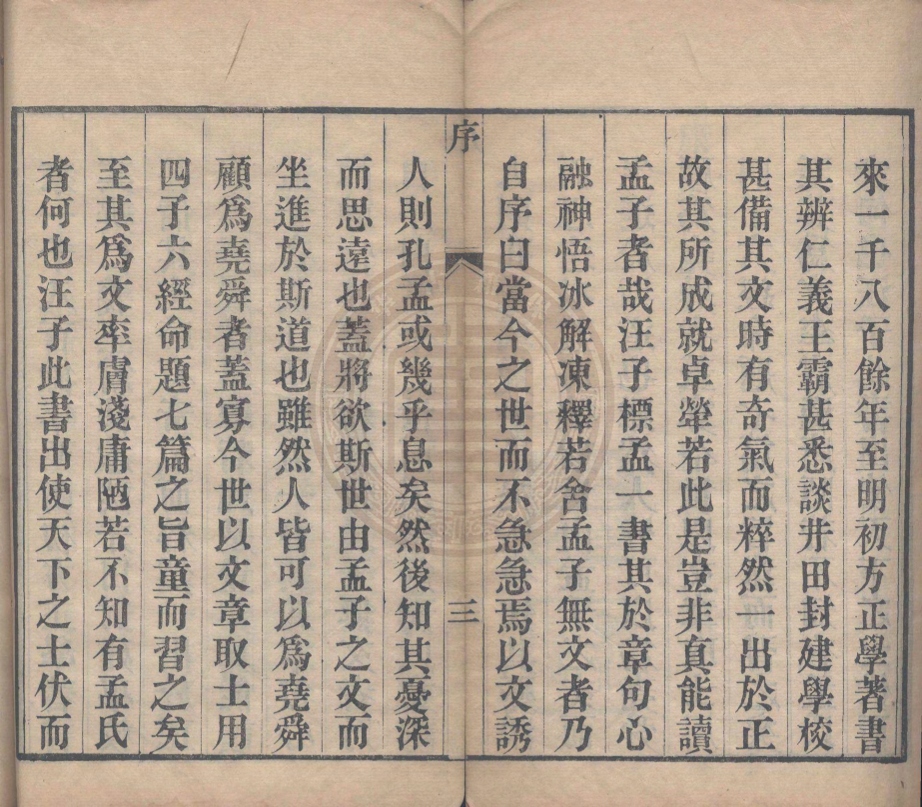 來一千八百餘年至明初方正學著書
其辨仁義王霸甚悉談井田封建學校
甚備其文時有奇氣而粹然一出於正
故其所成就卓犖若此是豈非真能讀
孟子者哉汪子標孟一書其於章句心
融神悟冰解凍釋若舍孟子無文者乃
自序曰當今之世而不急急焉以文誘
序
三
人則孔孟或幾乎息矣然後知其憂深
而思遠也蓋將欲斯世由孟子之文而
坐進於斯道也雖然人皆可以爲堯舜
顧爲堯舜者蓋寡今世以文章取士用
四子六經命題七篇之旨童而習之矣
至其爲文率膚淺庸陋若不知有孟氏
者何也汪子此書出使天下之士伏而